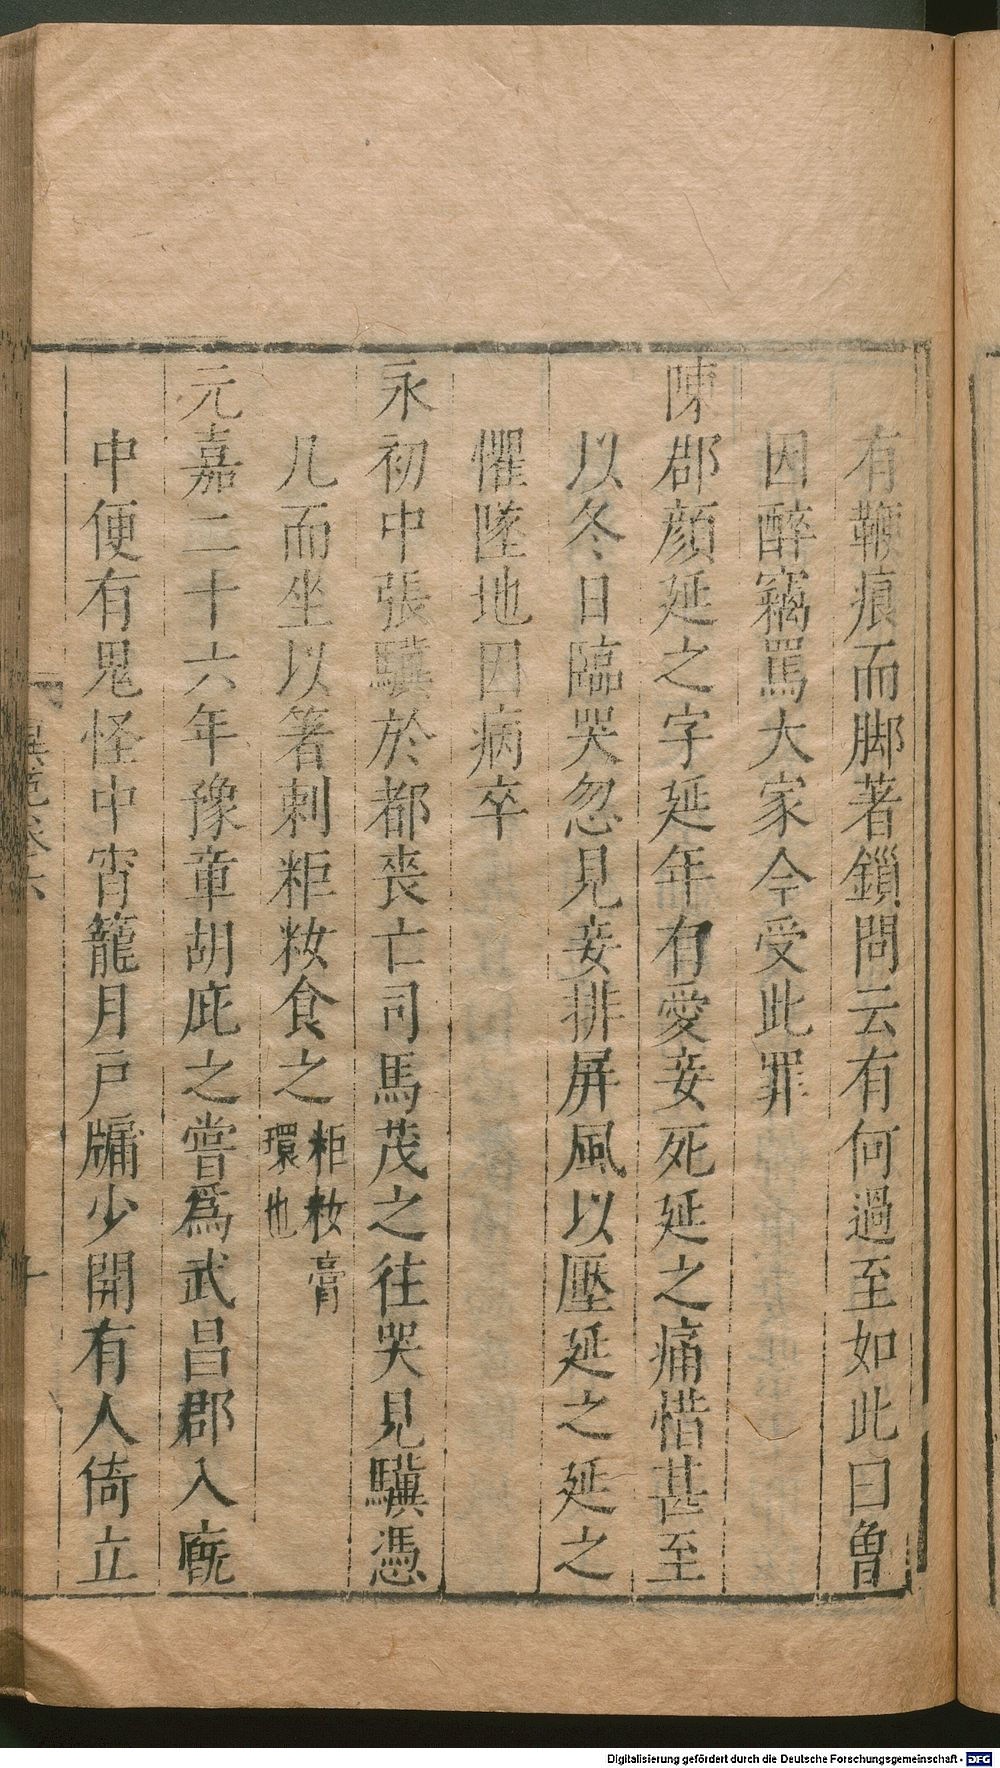 有鞭痕而脚著鎖問云有何過至如此曰曾
因醉竊罵大家今受此罪
陳郡顏延之字延年有愛妾死延之痛惜甚至
以冬日臨哭忽見妾排屏風以壓延之延之
懼墜地因病卒
永初中張驥於都喪亡司馬茂之往哭見驥憑
几而坐以箸刺粔籹食之粔籹膏環也
元嘉二十六年豫章胡庇之嘗爲武昌郡入廨
中便有鬼怪中宵籠月戸牖少開有人倚立
異苑卷六
Digitalisierung gefördert durch die Deutsche Forschungsgemeinschaft - DFG